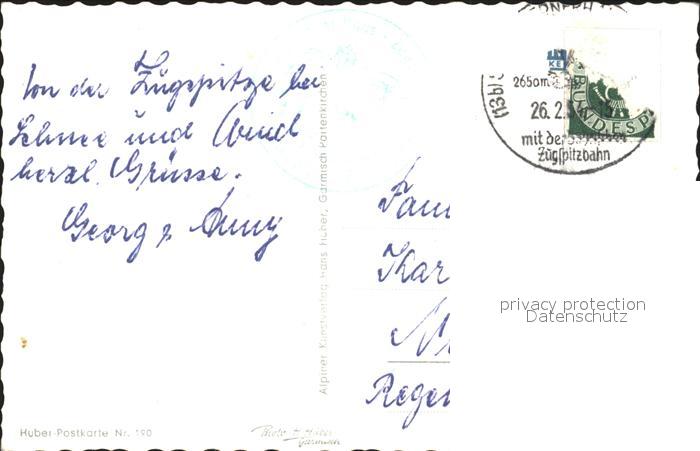 Von der Zugspitze bei
Schnee und Wind
herzl. Grüsse.
Georg &
Alpiner Kunstverlag Hans Huber, Garmisch Partenkirchen
2650m
26.2.5
mit der
Zugspitzbahn
BUNDESP
KE
Fam
Kar
Regen
privacy protection
Datenschutz
Huber-Postkarte Nr. 190
Photo H. Huber
Garmisch